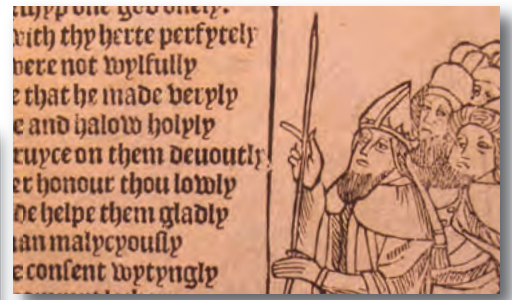 thyp one god onely.
with thy herte perfytely
were not wylfully
e that he made veryly
e and halow holyly
ruyce on them deuoutly.
er honour thou lowly
he helpe them gladly
man malycyously
e consent wytyngly